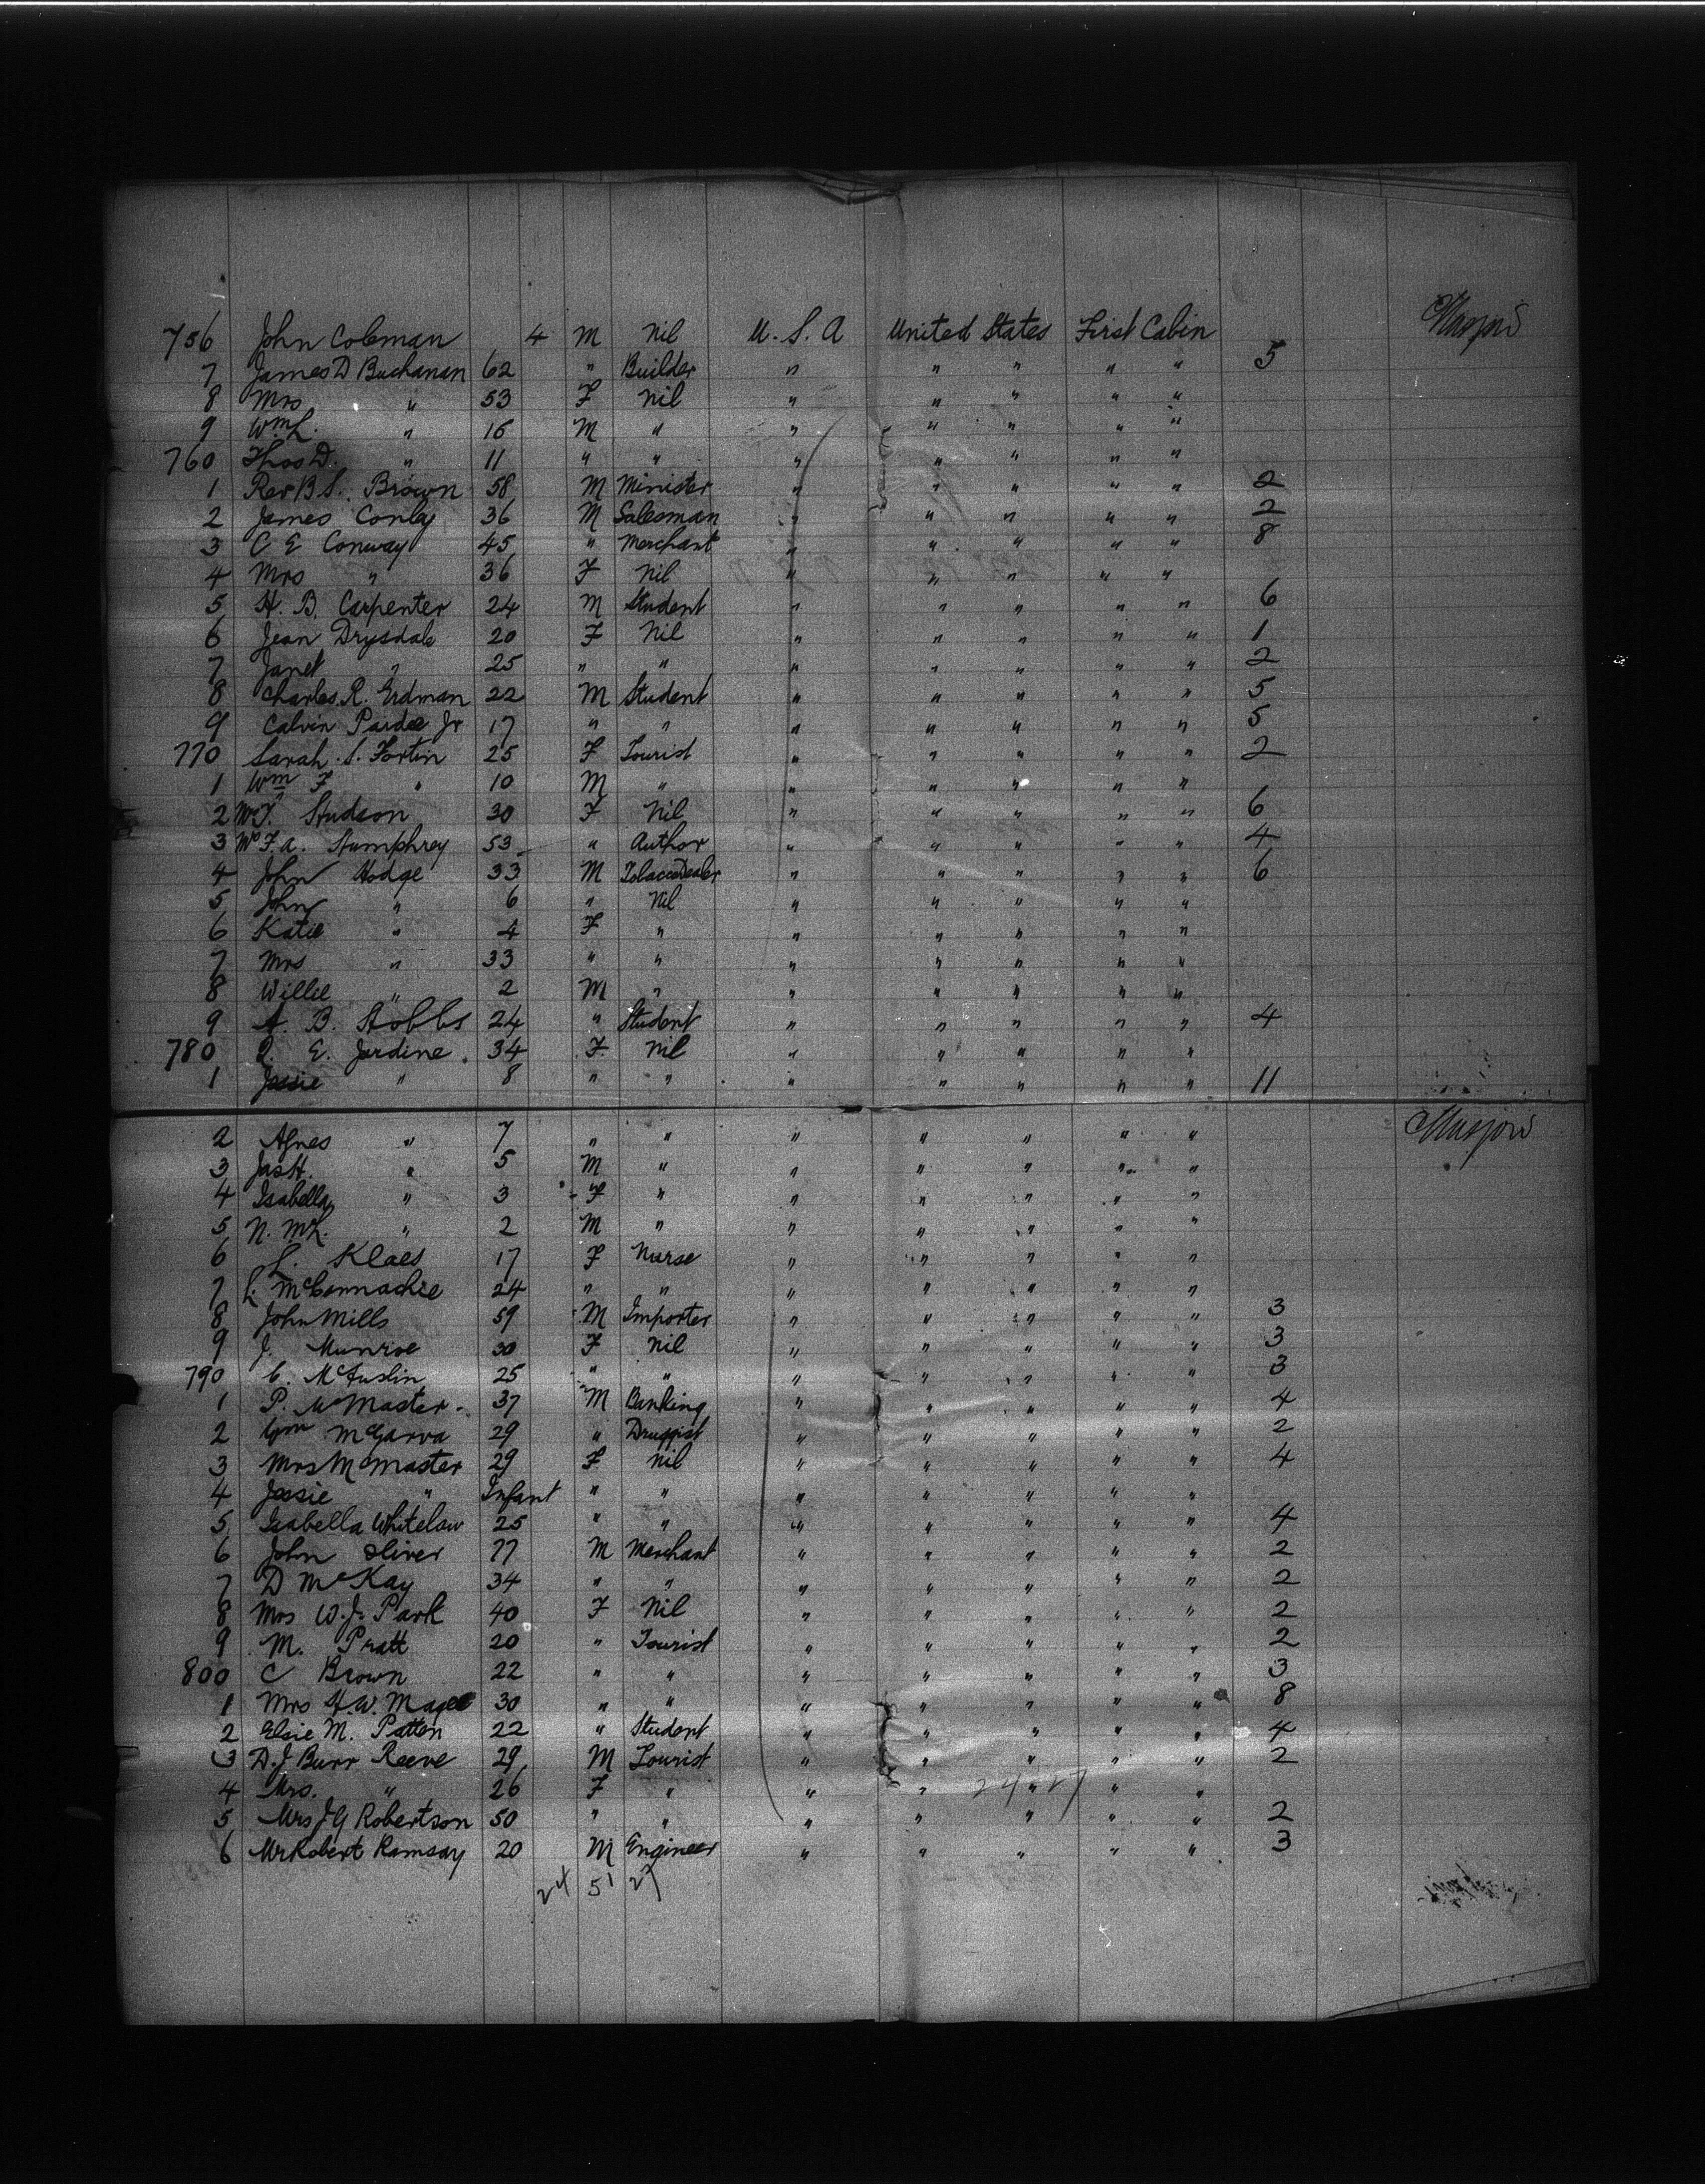 756 John Coleman 4 M Nil U. S. A United States First Cabin Glasgow
7 James D Buchanan 62 " Builder " " " " " 5
8 Mrs " 53 F Nil " " " " "
9 Wm L. " 16 M " " " " " "
760 Thos D. " 11 " " " " " " "
1 Rev B S. Brown 58 M Minister " " " " " 2
2 James Conley 36 M Salesman " " " " " 2
3 C E Conway 45 " Merchant " " " " " 8
4 Mrs " 36 F Nil " " " " "
5 H. B. Carpenter 24 M Student " " " " " 6
6 Jean Drysdale 20 F Nil " " " " " 1
7 Janet " 25 " " " " " " " 2
8 Charles R. Erdman 22 M Student " " " " " 5
9 Calvin Pardee Jr 17 " " " " " " " 5
770 Sarah S. Fortin 25 F Tourist " " " " " 2
1 Wm F " 10 M " " " " " "
2 Hudson 30 F Nil " " " " " 6
3 F. A. Humphrey 53 " Author " " " " " 4
4 John Hodge 33 M Tobacco Dealer " " " " " 6
5 John " 6 " Nil " " " " "
6 Katie " 4 F " " " " " "
7 Mrs " 33 " " " " " " "
8 Willie " 2 M " " " " " "
9 A. B. Hobbs 24 " Student " " " " " 4
780 E. Jardine 34 F Nil " " " " "
1 Jessie " 8 " " " " " " " 11
2 Agnes " 7 " " " " " " " Glasgow
3 Jas H. " 5 M " " " " " "
4 Isabella " 3 F " " " " " "
5 N. McL. " 2 M " " " " " "
6 L. Klaes 17 F Nurse " " " " "
7 L. McConnachie 24 " " " " " " "
8 John Mills 59 M Importer " " " " " 3
9 J. Munroe 30 F Nil " " " " " 3
790 C. McAuslin 25 " " " " " " " 3
1 P. McMaster 37 M Banking " " " " " 4
2 McGarva 29 " Druggist " " " " " 2
3 Mrs McMaster 29 F Nil " " " " " 4
4 Jessie " Infant " " " " " " "
5 Isabella Whitelaw 25 " " " " " " " 4
6 John Oliver 77 M Merchant " " " " " 2
7 D McKay 34 " " " " " " " 2
8 Mrs W. J. Park 40 F Nil " " " " " 2
9 M. Pratt 20 " Tourist " " " " " 2
800 C Brown 22 " " " " " " " 3
1 Mrs H. W. Magee 30 " " " " " " " 8
2 Elsie M. Patten 22 " Student " " " " " 4
3 D. J Burr Reeve 29 M Tourist " " " " " 2
4 Mrs. " 26 F " " " " " " 24 27
5 Mrs J G Robertson 50 " " " " " " " 2
6 Mr Robert Ramsay 20 M Engineer " " " " " 3
24 51 27